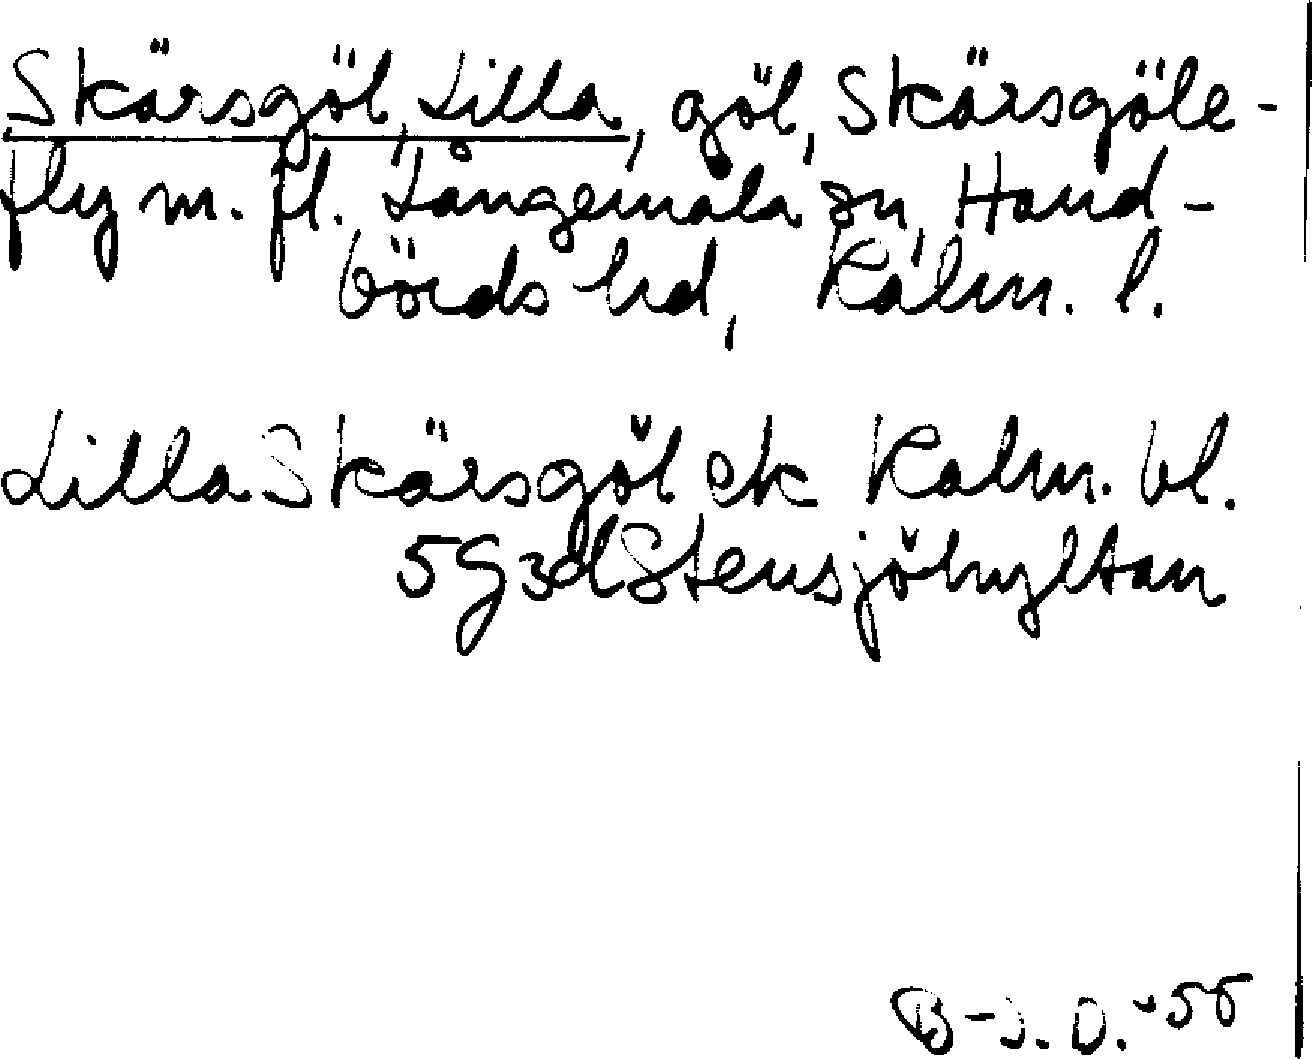 Skärsgöl, Lilla, göl, Skärsgöle-
fly m. fl. Långemåla sn, Hand-
börds hd, Kalm. l.
Lilla Skärsgöl ek Kalm. bl.
5G3d Stensjöhyltan
B-J. D. -55